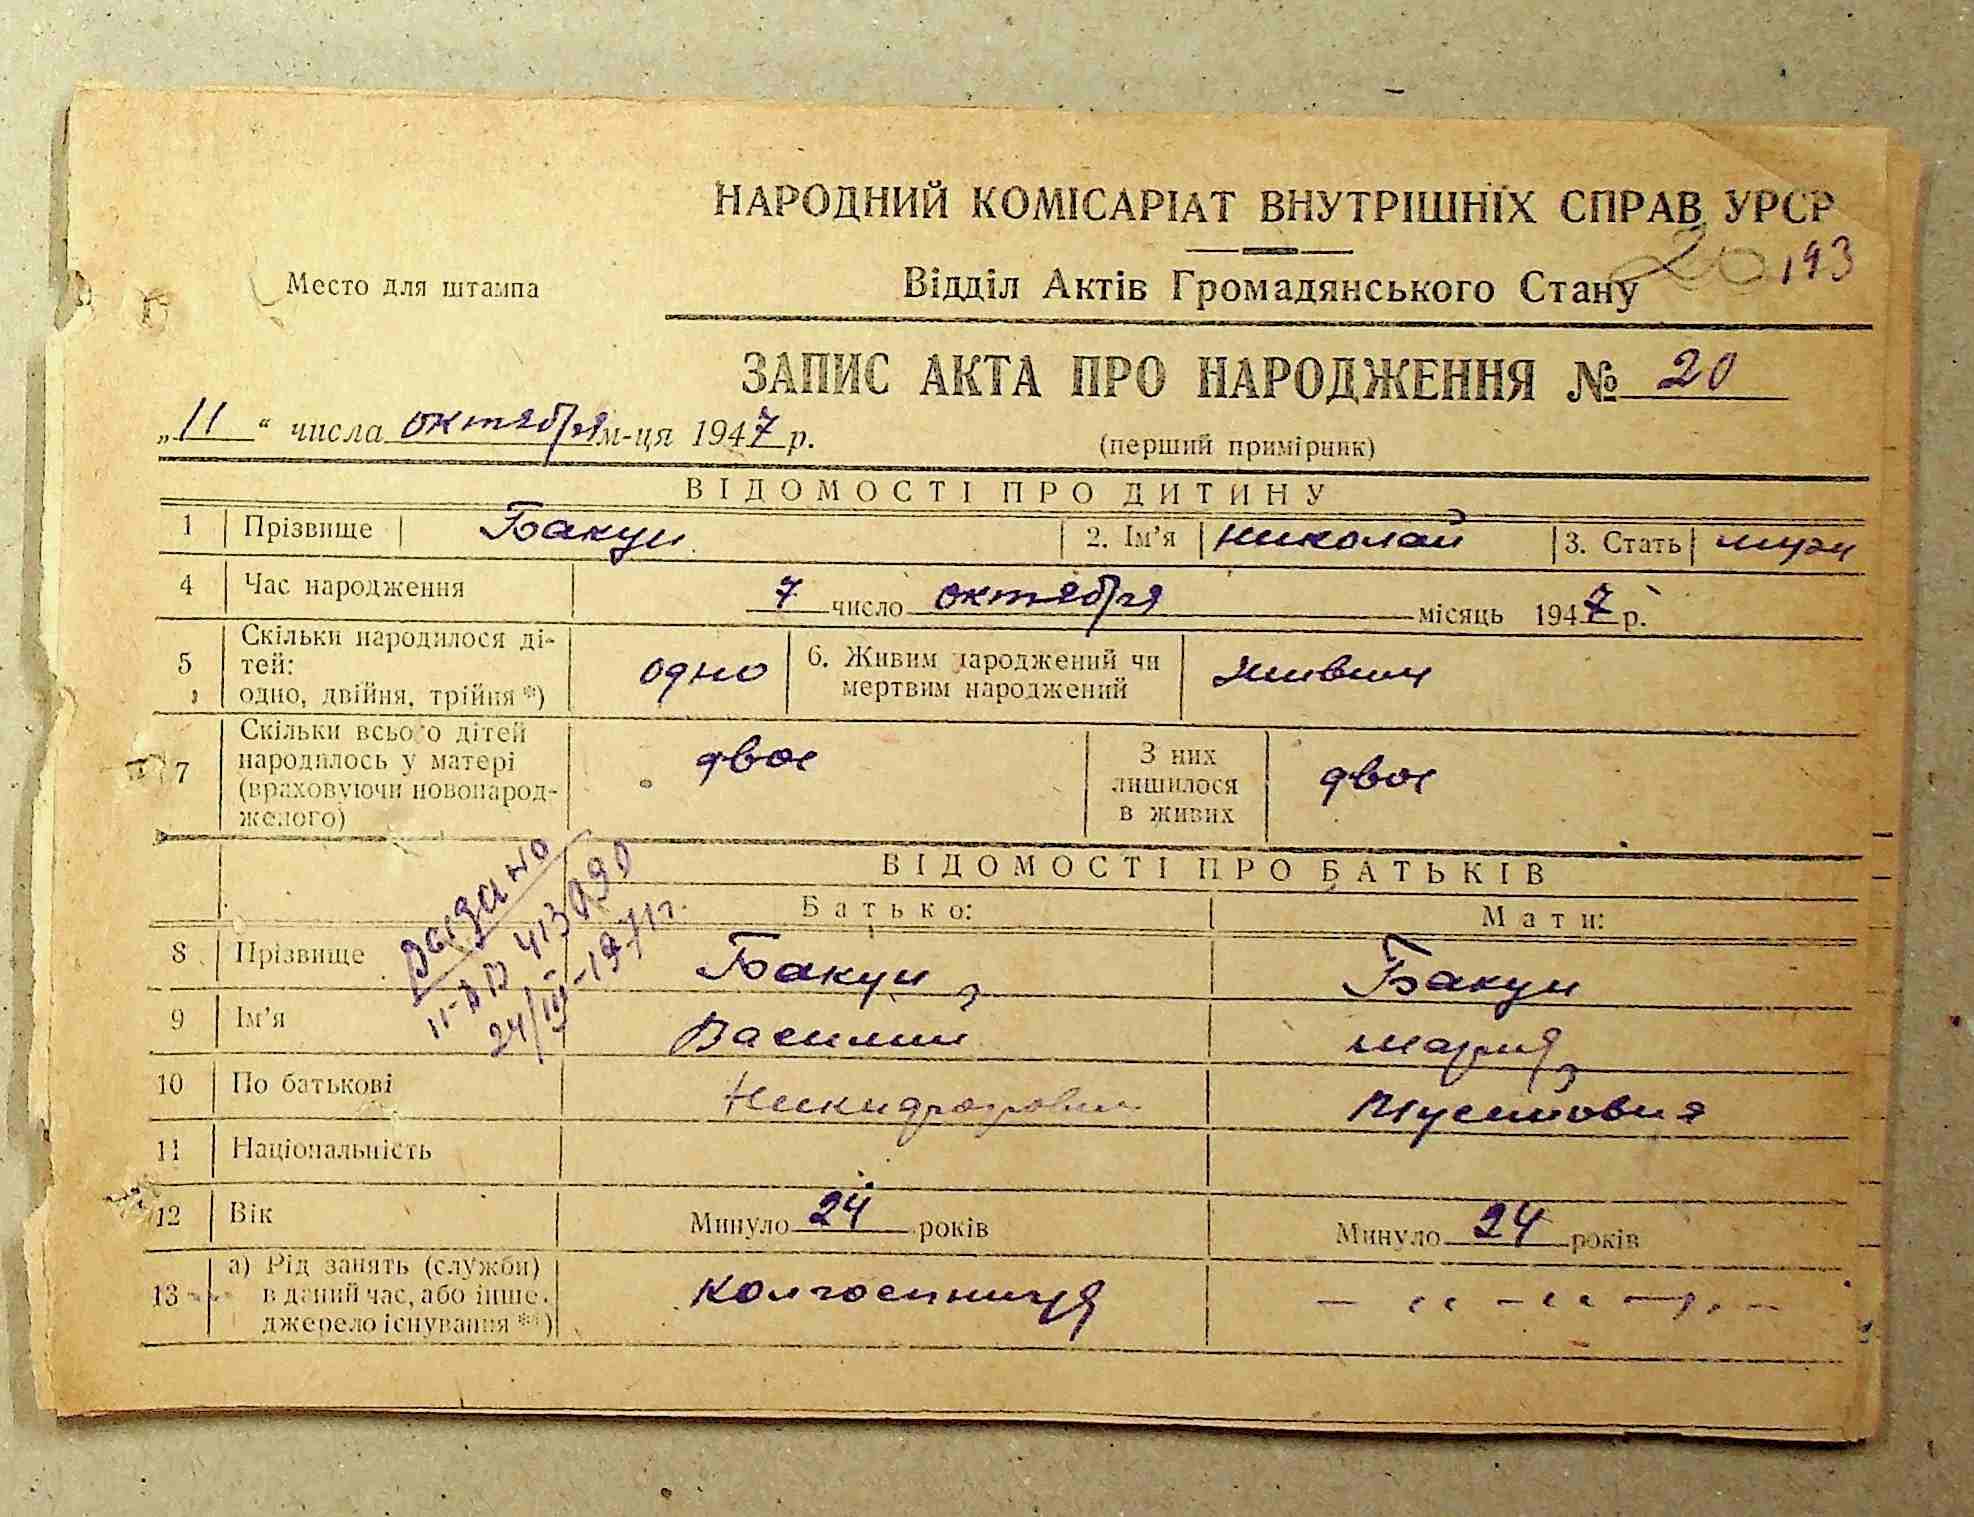 НАРОДНИЙ КОМІСАРІАТ ВНУТРІШНІХ СПРАВ УРСР
20 193
Место для штампа
Відділ Актів Громадянського Стану
ЗАПИС АКТА ПРО НАРОДЖЕННЯ № 20
„11“ числа октября м-ця 1947 р.
(перший примірник)
ВІДОМОСТІ ПРО ДИТИНУ
1 Прізвище Бакун 2. Ім'я Николай 3. Стать муж
4 Час народження 7 число октября місяць 1947 р.
5 Скільки народилося ді-
тей:
одно, двійня, трійня *)
одно
6. Живим народжений чи
мертвим народжений
живим
7 Скільки всього дітей
народилось у матері
(враховуючи новонарод-
желого)
двое
З них
лишилося
в живих
двое
ВІДОМОСТІ ПРО БАТЬКІВ
Батько: Мати:
Выдано
413090
24/III-1971г.
8 Прізвище Бакун Бакун
9 Ім'я Василий Мария
10 По батькові
11 Національність
12 Вік Минуло 24 років Минуло 24 років
13 а) Рід занять (служби)
в даний час, або інше
джерело існування **)
колгоспниця - ‹‹ - ‹‹ - ›› -